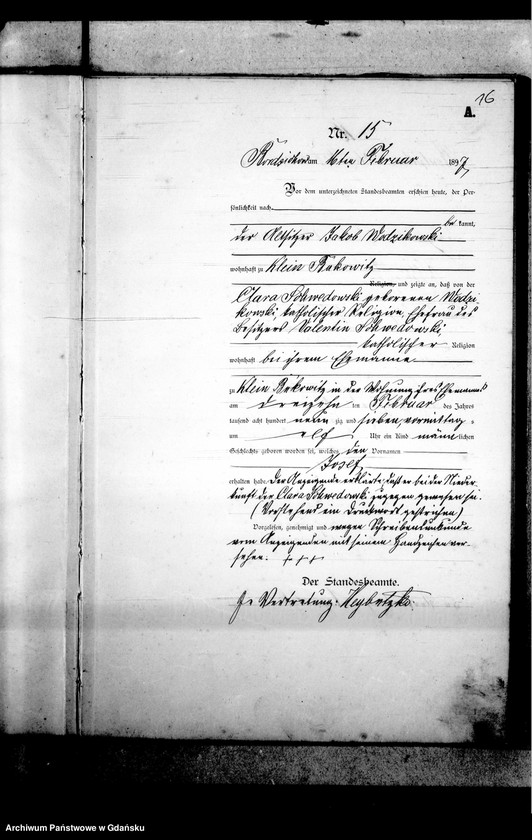 16
A.
Nr. 15
am 16ten Februar 1897
Vor dem unterzeichneten Standesbeamten erschien heute, der Per-
sönlichkeit nach
be kannt,
der Altsitzer Jakob Wodzikowski
wohnhaft zu Klein Rakowitz
Religion, und zeigte an, daß von der
Clara Schwedowski geborenen Wodzi-
kowski, katholischer Religion, Ehefrau des
Besitzers Valentin Schwedowski
katholischer Religion
wohnhaft bei ihrem Ehemanne
zu Klein Rakowitz in der Wohnung ihres Ehemannes
am dreizehn ten Februar des Jahres
tausend acht hundert neun zig und sieben, vormittag s
um elf Uhr ein Kind männ lichen
Geschlechts geboren worden sei, welches den Vornamen
Josef
erhalten habe. Der Anzeigende erklärte, daß er bei der Nieder-
kunft der Clara Schwedowski zugegen gewesen sei.
(Vorstehend ein Druckwort gestrichen)
Vorgelesen, genehmigt und wegen Schreibensunkunde
vom Anzeigenden mit seinem Handzeichen ver-
sehen. +++
Der Standesbeamte.
In Vertretung:
Archiwum Państwowe w Gdańsku